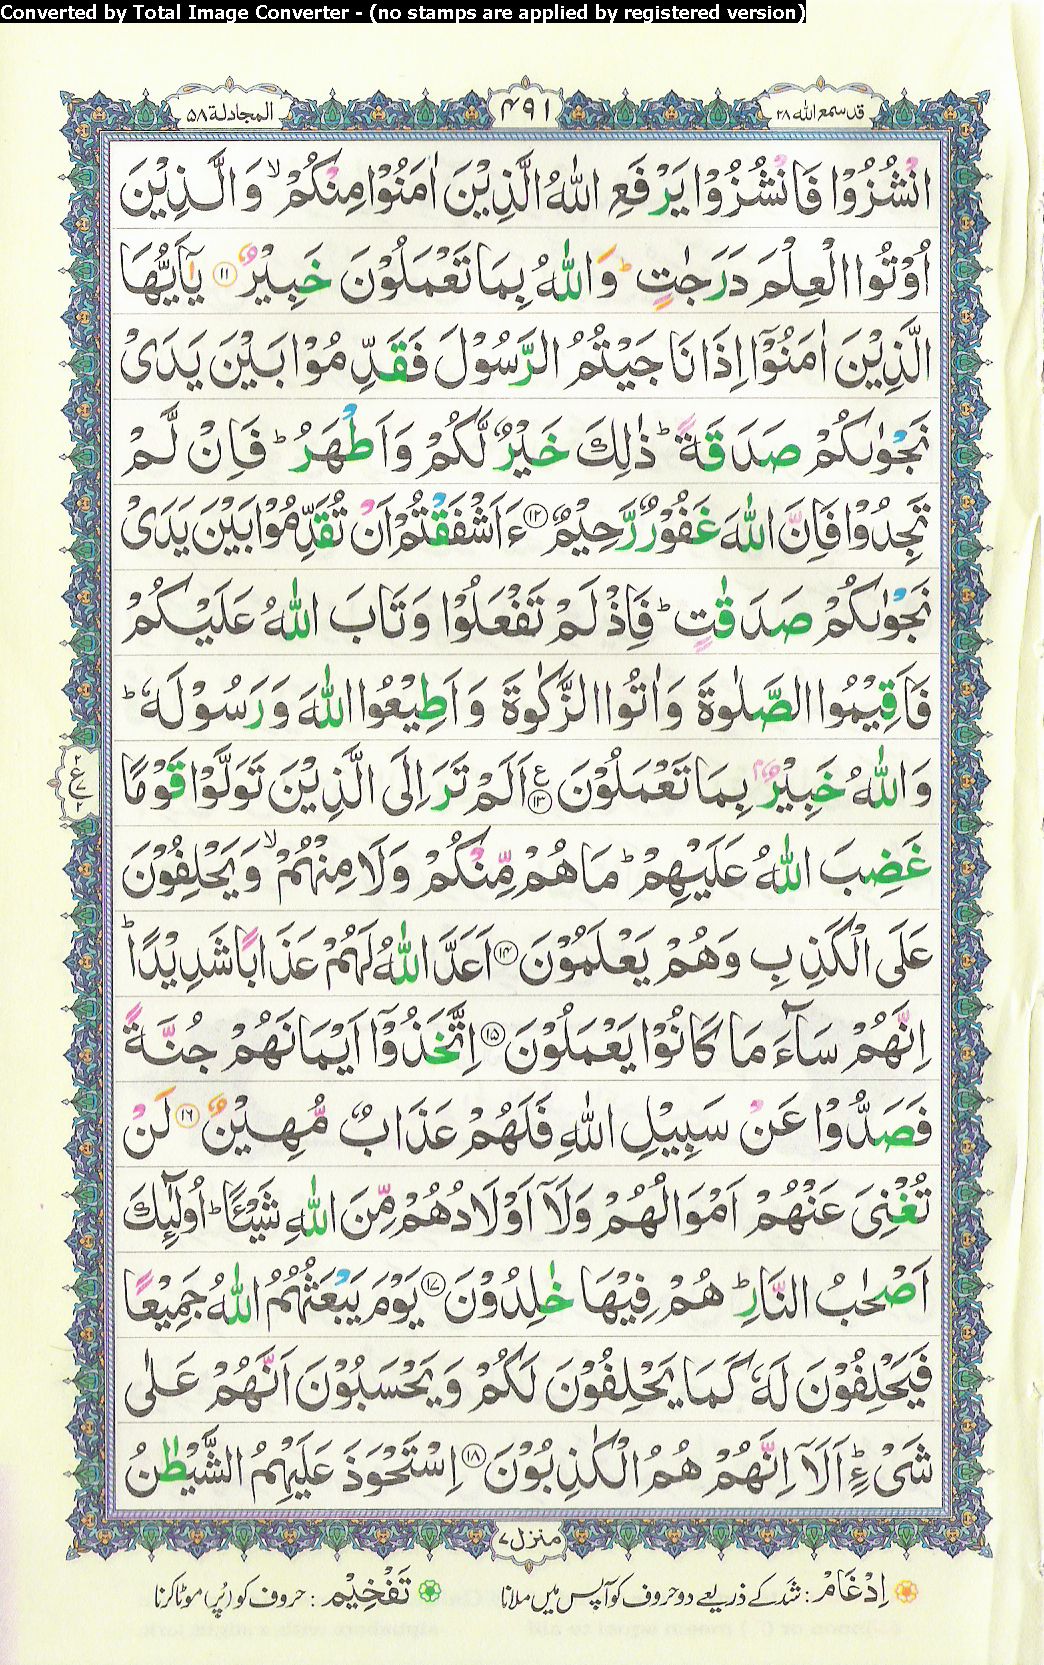 Converted by Total Image Converter - (no stamps are applied by registered version)
قد سمع الله ۲۸
۴۹۱
المجادلة ۵۸
انْشُزُوْا فَانْشُزُوْا يَرْفَعِ اللّٰهُ الَّذِيْنَ اٰمَنُوْا مِنْكُمْ ۙ وَالَّذِيْنَ
اُوْتُوا الْعِلْمَ دَرَجٰتٍ ؕ وَاللّٰهُ بِمَا تَعْمَلُوْنَ خَبِيْرٌ ۝۱۱ يٰۤاَيُّهَا
الَّذِيْنَ اٰمَنُوْۤا اِذَا نَاجَيْتُمُ الرَّسُوْلَ فَقَدِّمُوْا بَيْنَ يَدَىْ
نَجْوٰىكُمْ صَدَقَةً ؕ ذٰلِكَ خَيْرٌ لَّكُمْ وَاَطْهَرُ ؕ فَاِنْ لَّمْ
تَجِدُوْا فَاِنَّ اللّٰهَ غَفُوْرٌ رَّحِيْمٌ ۝۱۲ ءَاَشْفَقْتُمْ اَنْ تُقَدِّمُوْا بَيْنَ يَدَىْ
نَجْوٰىكُمْ صَدَقٰتٍ ؕ فَاِذْ لَمْ تَفْعَلُوْا وَتَابَ اللّٰهُ عَلَيْكُمْ
فَاَقِيْمُوا الصَّلٰوةَ وَاٰتُوا الزَّكٰوةَ وَاَطِيْعُوا اللّٰهَ وَرَسُوْلَهٗ ؕ
وَاللّٰهُ خَبِيْرٌۢ بِمَا تَعْمَلُوْنَ ۝۱۳ ع اَلَمْ تَرَ اِلَى الَّذِيْنَ تَوَلَّوْا قَوْمًا
۲ ع ۷ ۲
غَضِبَ اللّٰهُ عَلَيْهِمْ ؕ مَا هُمْ مِّنْكُمْ وَلَا مِنْهُمْ ۙ وَيَحْلِفُوْنَ
عَلَى الْكَذِبِ وَهُمْ يَعْلَمُوْنَ ۝۱۴ اَعَدَّ اللّٰهُ لَهُمْ عَذَابًا شَدِيْدًا ؕ
اِنَّهُمْ سَآءَ مَا كَانُوْا يَعْمَلُوْنَ ۝۱۵ اِتَّخَذُوْۤا اَيْمَانَهُمْ جُنَّةً
فَصَدُّوْا عَنْ سَبِيْلِ اللّٰهِ فَلَهُمْ عَذَابٌ مُّهِيْنٌ ۝۱۶ لَنْ
تُغْنِىَ عَنْهُمْ اَمْوَالُهُمْ وَلَاۤ اَوْلَادُهُمْ مِّنَ اللّٰهِ شَيْـًٔا ؕ اُولٰٓئِكَ
اَصْحٰبُ النَّارِ ؕ هُمْ فِيْهَا خٰلِدُوْنَ ۝۱۷ يَوْمَ يَبْعَثُهُمُ اللّٰهُ جَمِيْعًا
فَيَحْلِفُوْنَ لَهٗ كَمَا يَحْلِفُوْنَ لَكُمْ وَيَحْسَبُوْنَ اَنَّهُمْ عَلٰى
شَىْءٍ ؕ اَلَاۤ اِنَّهُمْ هُمُ الْكٰذِبُوْنَ ۝۱۸ اِسْتَحْوَذَ عَلَيْهِمُ الشَّيْطٰنُ
منزل ۷
اِدْغَامْ : شَد کے ذریعے دو حروف کو آپس میں ملانا
تَفْخِيْم : حروف کو (پُر) موٹا کرنا